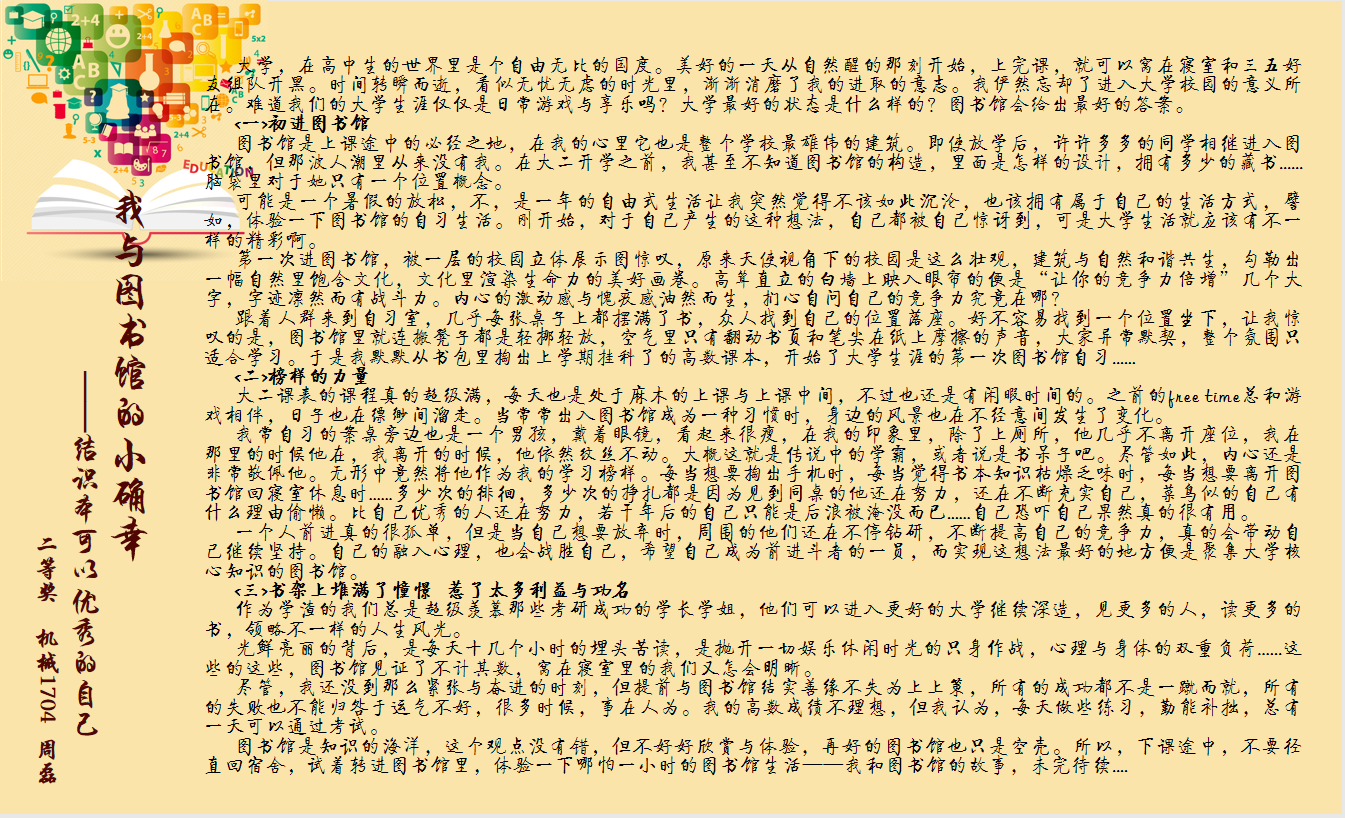 我与图书馆的小确幸
——结识本可以优秀的自己
二等奖 机械1704 周磊
大学，在高中生的世界里是个自由无比的国度。美好的一天从自然醒的那刻开始，上完课，就可以窝在寝室和三五好
友组队开黑。时间转瞬而逝，看似无忧无虑的时光里，渐渐消磨了我的进取的意志。我俨然忘却了进入大学校园的意义所
在。难道我们的大学生涯仅仅是日常游戏与享乐吗？大学最好的状态是什么样的？图书馆会给出最好的答案。
<一>初进图书馆
图书馆是上课途中的必经之地，在我的心里它也是整个学校最雄伟的建筑。即使放学后，许许多多的同学相继进入图
书馆，但那波人潮里从来没有我。在大二开学之前，我甚至不知道图书馆的构造，里面是怎样的设计，拥有多少的藏书……
脑袋里对于她只有一个位置概念。
可能是一个暑假的放松，不，是一年的自由式生活让我突然觉得不该如此沉沦，也该拥有属于自己的生活方式，譬
如，体验一下图书馆的自习生活。刚开始，对于自己产生的这种想法，自己都被自己惊讶到，可是大学生活就应该有不一
样的精彩啊。
第一次进图书馆，被一层的校园立体展示图惊叹，原来天使视角下的校园是这么壮观，建筑与自然和谐共生，勾勒出
一幅自然里饱含文化，文化里渲染生命力的美好画卷。高耸直立的白墙上映入眼帘的便是“让你的竞争力倍增”几个大
字，字迹凛然而有战斗力。内心的激动感与愧疚感油然而生，扪心自问自己的竞争力究竟在哪？
跟着人群来到自习室，几乎每张桌子上都摆满了书，众人找到自己的位置落座。好不容易找到一个位置坐下，让我惊
叹的是，图书馆里就连搬凳子都是轻挪轻放，空气里只有翻动书页和笔尖在纸上摩擦的声音，大家异常默契，整个氛围只
适合学习。于是我默默从书包里掏出上学期挂科了的高数课本，开始了大学生涯的第一次图书馆自习……
<二>榜样的力量
大二课表的课程真的超级满，每天也是处于麻木的上课与上课中间，不过也还是有闲暇时间的。之前的free time总和游
戏相伴，日子也在缥缈间溜走。当常常出入图书馆成为一种习惯时，身边的风景也在不经意间发生了变化。
我常自习的案桌旁边也是一个男孩，戴着眼镜，看起来很瘦，在我的印象里，除了上厕所，他几乎不离开座位，我在
那里的时候他在，我离开的时候，他依然纹丝不动。大概这就是传说中的学霸，或者说是书呆子吧。尽管如此，内心还是
非常敬佩他。无形中竟然将他作为我的学习榜样。每当想要掏出手机时，每当觉得书本知识枯燥乏味时，每当想要离开图
书馆回寝室休息时……多少次的徘徊，多少次的挣扎都是因为见到同桌的他还在努力，还在不断充实自己，菜鸟似的自己有
什么理由偷懒。比自己优秀的人还在努力，若干年后的自己只能是后浪被淹没而已……自己恐吓自己果然真的很有用。
一个人前进真的很孤单，但是当自己想要放弃时，周围的他们还在不停钻研，不断提高自己的竞争力，真的会带动自
己继续坚持。自己的融入心理，也会战胜自己，希望自己成为前进斗者的一员，而实现这想法最好的地方便是聚集大学核
心知识的图书馆。
<三>书架上堆满了憧憬 惹了太多利益与功名
作为学渣的我们总是超级羡慕那些考研成功的学长学姐，他们可以进入更好的大学继续深造，见更多的人，读更多的
书，领略不一样的人生风光。
光鲜亮丽的背后，是每天十几个小时的埋头苦读，是抛开一切娱乐休闲时光的只身作战，心理与身体的双重负荷……这
些的这些，图书馆见证了不计其数，窝在寝室里的我们又怎会明晰。
尽管，我还没到那么紧张与奋进的时刻，但提前与图书馆结实善缘不失为上上策，所有的成功都不是一蹴而就，所有
的失败也不能归咎于运气不好，很多时候，事在人为。我的高数成绩不理想，但我认为，每天做些练习，勤能补拙，总有
一天可以通过考试。
图书馆是知识的海洋，这个观点没有错，但不好好欣赏与体验，再好的图书馆也只是空壳。所以，下课途中，不要径
直回宿舍，试着转进图书馆里，体验一下哪怕一小时的图书馆生活——我和图书馆的故事，未完待续....